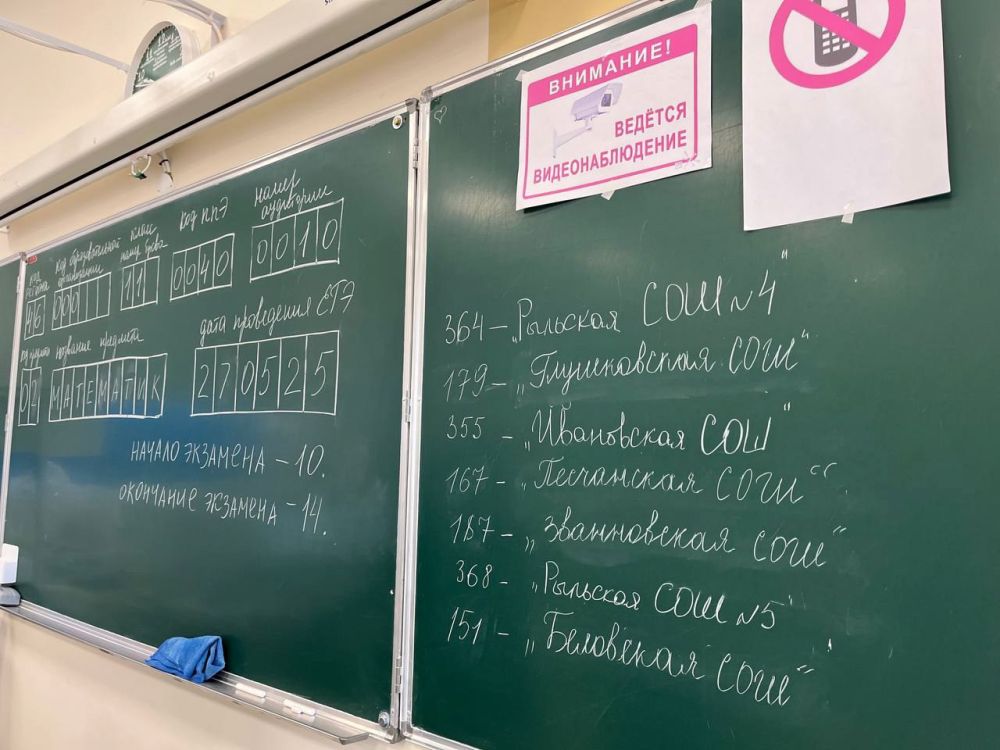 код региона
46
код образовательной организации
000
класс номер буква
11
код ППЭ
0040
номер аудитории
0010
код предмета
02
название предмета
МАТЕМАТИК
дата проведения ЕГЭ
270525
НАЧАЛО ЭКЗАМЕНА – 10.
ОКОНЧАНИЕ ЭКЗАМЕНА – 14.
ВНИМАНИЕ!
ВЕДЁТСЯ
ВИДЕОНАБЛЮДЕНИЕ
364 – „Рыльская СОШ №4"
179 – „Глушковская СОШ"
355 – „Ивановская СОШ"
167 – „Песчанская СОШ"
187 – „Званновская СОШ"
368 – „Рыльская СОШ №5"
151 – „Беловская СОШ"